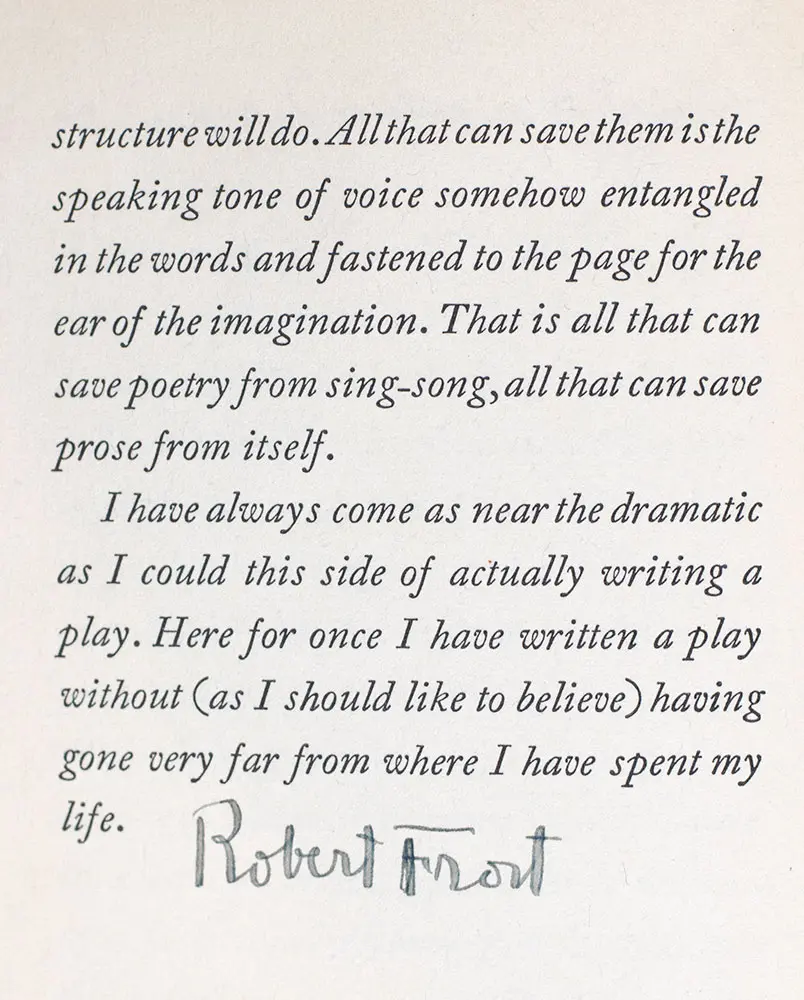 structure will do. All that can save them is the
speaking tone of voice somehow entangled
in the words and fastened to the page for the
ear of the imagination. That is all that can
save poetry from sing-song, all that can save
prose from itself.
I have always come as near the dramatic
as I could this side of actually writing a
play. Here for once I have written a play
without (as I should like to believe) having
gone very far from where I have spent my
life.
Robert Frost